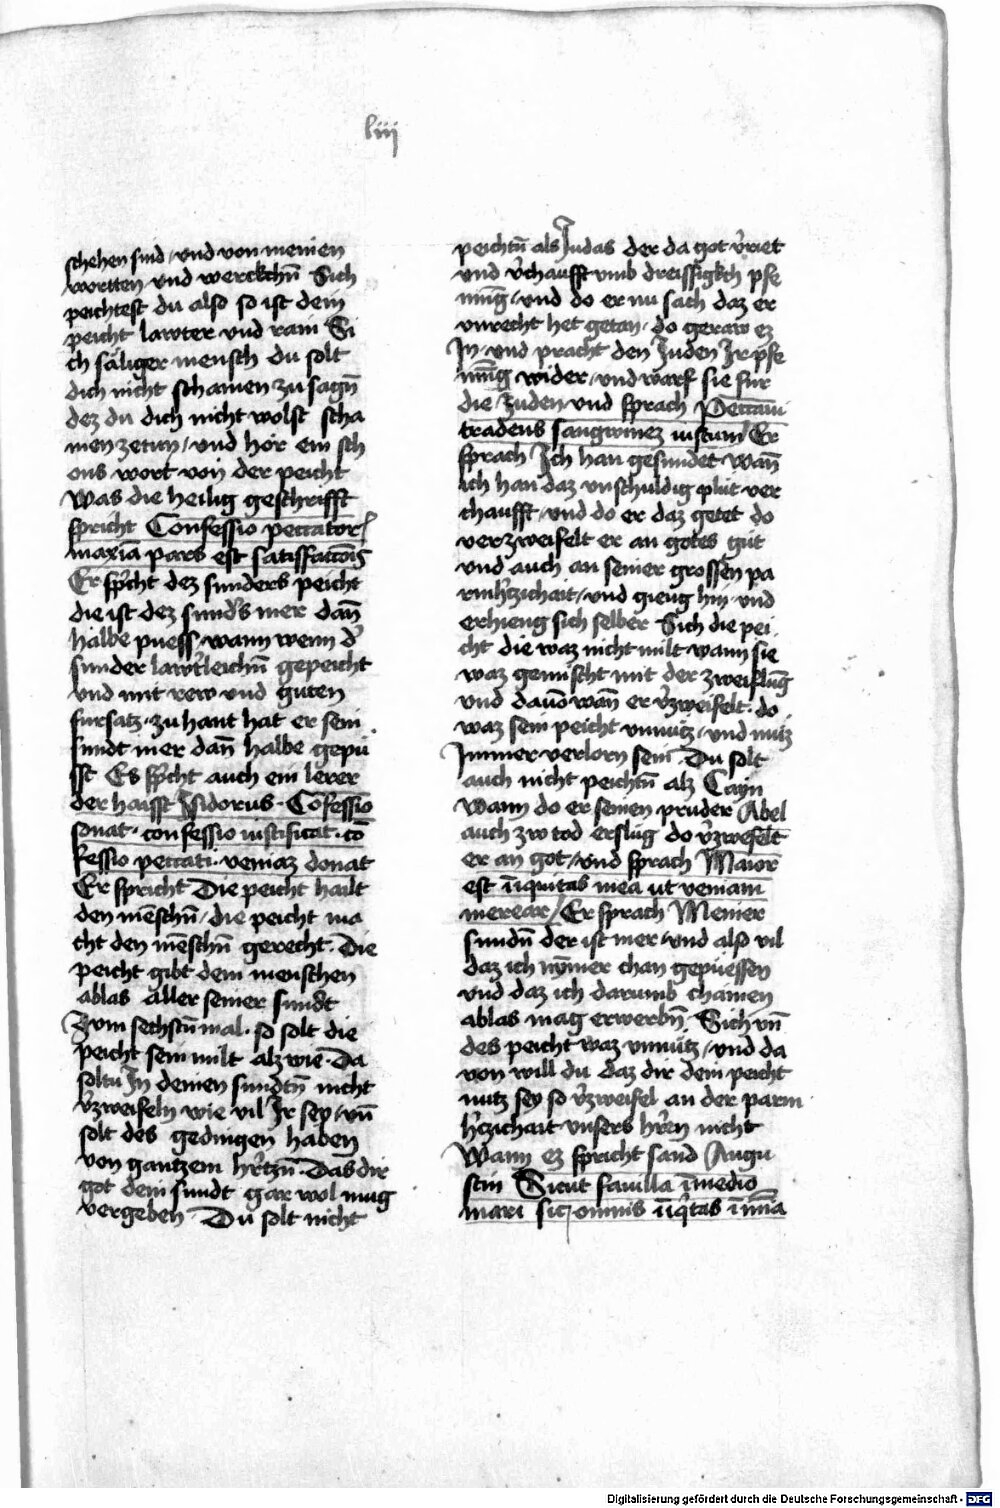 liij
schehen sind / vnd von meinen
wortten vnd werckchn̄ Sich
peichtest du also so ist dein
peicht lawter vnd rain Si
ch säliger mensch du solt
dich nicht schamen zu sagn̄
dez du dich nicht wolst scha
men zetun / vnd hör ein sch
ons wort von der peicht
Was die heilig geschrifft
spricht Confessio peccator
maxīa pars est satisfactōis
Er sp̄cht dez sunders peicht
die ist dez sund's mer dan̄
halbe puess / wann wenn d'
sunder lawt'leichn̄ gepeicht
vnd mit rew vnd guten
fursatz · zu hant hat er sein
sundt mer dan̄ halbe gepü
sst Es sp̄cht auch ein lerer
der haisst Isidorus · Cōfessio
sonat · confessio iustificat · cō
fessio peccati · veniaz donat
Er spricht Die peicht hailt
den mēschn̄ / die peicht ma
cht den mēschn̄ gerecht · Die
peicht gibt dem menschen
ablas aller seiner sundt
Zvm sechstn̄ mal · so solt die
peicht sein milt alz wie · Da
soltu In deinen sundtn̄ nicht
v'zweifeln wie vil Ir sey / vn̄
solt des gedingen haben
von gantzem h'rtzn̄ · Das dir
got dein sundt gar wol mug
vergeben · Du solt nicht
peichtn̄ als Judas der da got v'riet
vnd v'chaufft vmb dreissigkch pfe
nniḡ / vnd do er nu sach daz er
vnrecht het getan · do geraw ez
In · vnd pracht den Juden Ir pfe
nniḡ wider / vnd warf sie fur
die Juden vnd sprach Peccaui
tradens sangwinez iustum Er
sprach Ich han gesundet wan̄
ich han daz vnschuldig plüt ver
chaufft / vnd do er daz getet do
verzweifelt er an gotes güt
vnd auch an seiner grossen pa
rmh'tzichait / vnd gieng hin vnd
erhieng sich selber Sich die pei
cht die waz nicht milt wann sie
waz gemischt mit der zweiflūg
vnd dauō wan̄ er v'zweifelt · do
waz sein peicht vnnütz / vnd müz
Immer verlorn sein · Du solt
auch nicht peichtn̄ alz Cayn
Wann do er seinen pruder Abel
auch zw tod erslüg do v'zwefelt
er an got / vnd sprach Maior
est īiquitas mea ut veniam
merear / Er sprach Meiner
sundn̄ der ist mer / vnd also vil
daz ich nȳmer chan gepüessen
vnd daz ich darumb chainen
ablas mag erwerbn̄ · Sich vn̄
des peicht waz vnnütz / vnd da
von will du daz dir dein peicht
nutz sey so v'zweifel an der parm
h'tzichait vnsers h'ren nicht
Wann ez spricht sand Augu
stin Sicut fauilla ī medio
mari sic omnis īiq'tas ī mīa
Digitalisierung gefördert durch die Deutsche Forschungsgemeinschaft - DFG